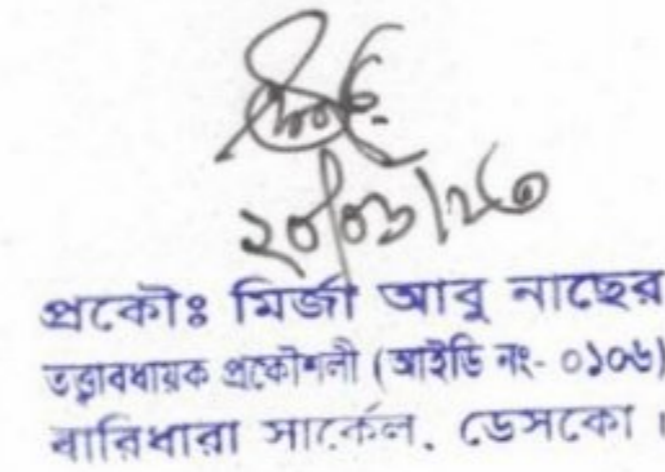 প্রকৌঃ মির্জা আবু নাছের
তত্ত্বাবধায়ক প্রকৌশলী (আইডি নং- ০১০৬)
বারিধারা সার্কেল, ডেসকো।